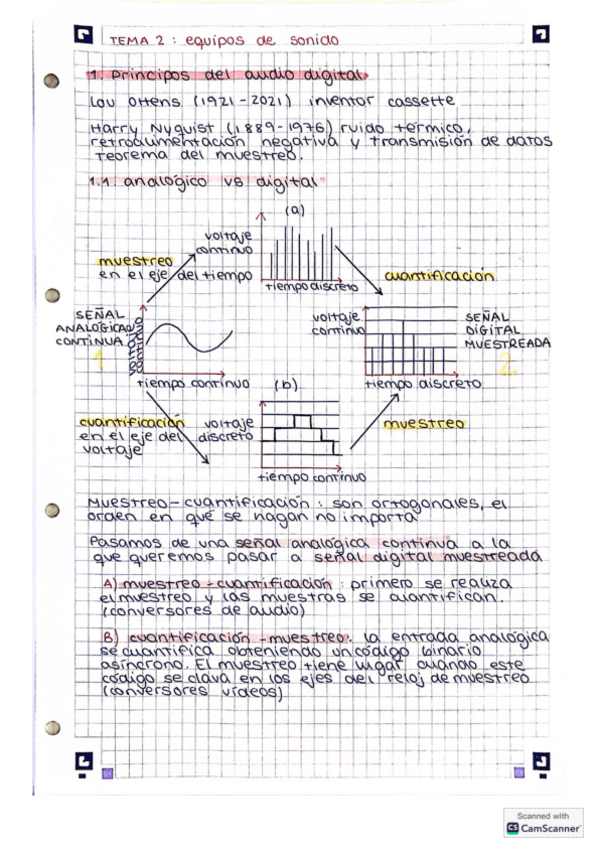 TEMA 2 : equipos de sonido
1. Principos del audio digital
Lou Ottens (1921-2021) inventor cassette
Harry Nyquist (1889-1976) ruido térmico,
retroalimentación negativa y transmisión de datos
Teorema del muestreo.
1.1. analógico vs digital
(a)
voltaje
continuo
muestreo
en el eje del tiempo
tiempo discreto
cuantificación
SEÑAL
ANALÓGICA
CONTINUA
1
tiempo continuo
voltaje
continuo
SEÑAL
DIGITAL
MUESTREADA
2
tiempo discreto
(b)
cuantificación
en el eje del
voltaje
voltaje
discreto
muestreo
tiempo continuo
Muestreo-cuantificación : son ortogonales, el
orden en que se hagan no importa
Pasamos de una señal analógica continua a la
que queremos pasar a señal digital muestreada
A) muestreo-cuantificación : primero se realiza
el muestreo y las muestras se cuantifican.
(conversores de audio)
B) cuantificación-muestreo: la entrada analógica
se cuantifica obteniendo un código binario
asíncrono. El muestreo tiene lugar cuando este
código se clava en los ejes del reloj de muestreo
(conversores vídeos)
Scanned with
CS CamScanner